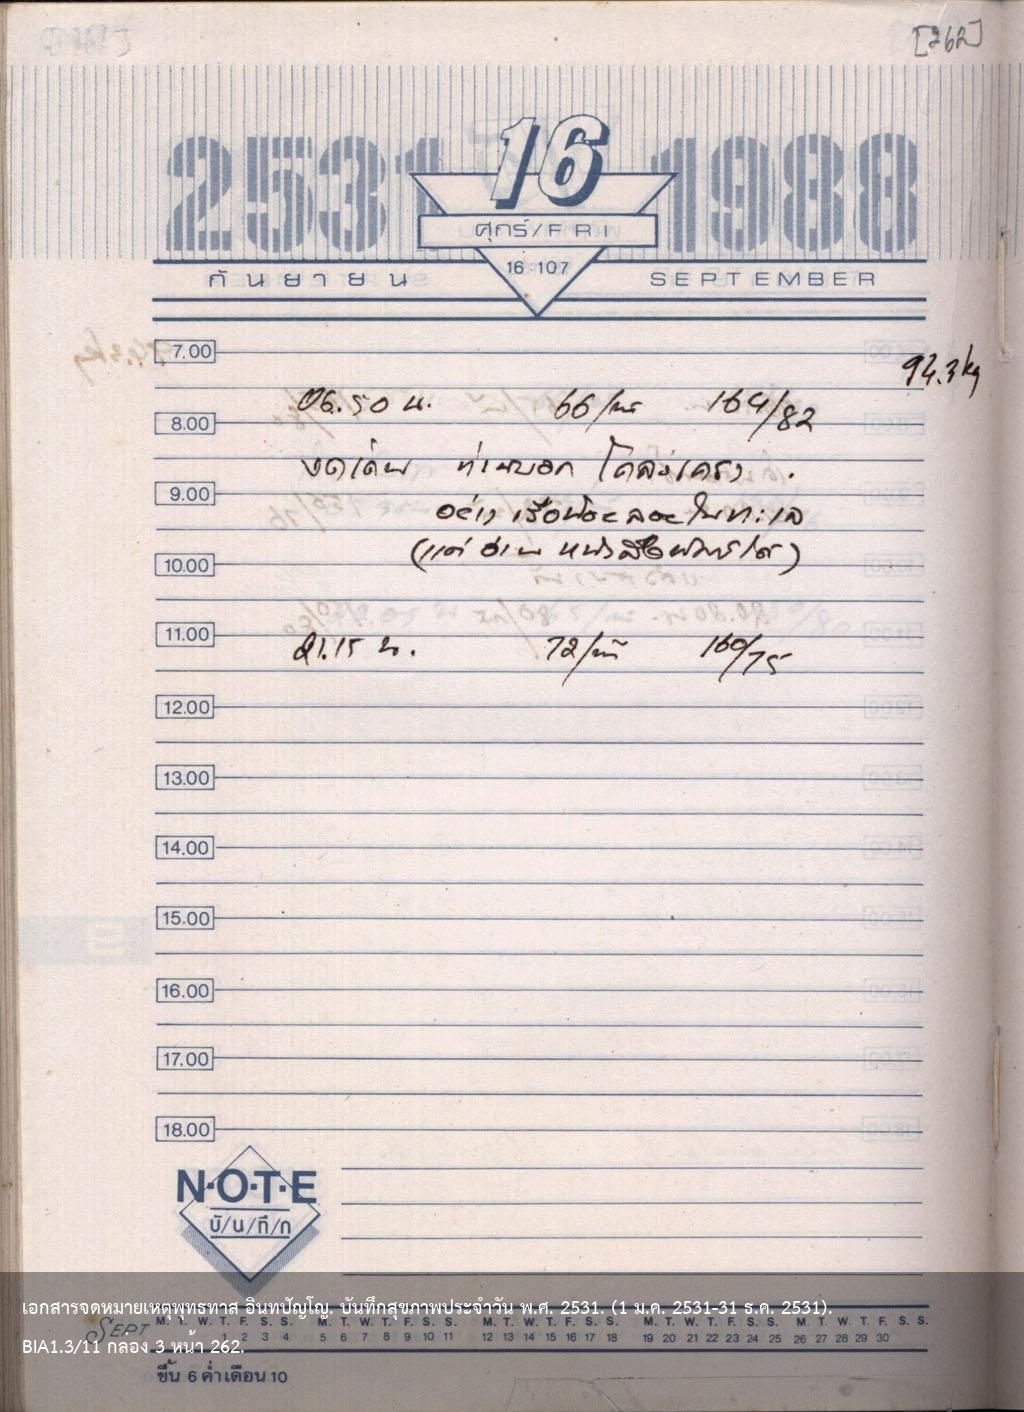 [262]
2531 16 1988
ศุกร์/FRI
16:107
กันยายน SEPTEMBER
7.00
94.3 kg
06.50 น. 66/นาที 164/82
8.00
งดเดิน ท่านบอก โคลงเคลง .
9.00
อย่าง เรือน้อย ลอยในทะเล
(แต่ อ่าน หนังสือพิมพ์ได้)
10.00
11.00
21.15 น. 72/นาที 160/75
12.00
13.00
14.00
15.00
16.00
17.00
18.00
N·O·T·E
บั/น/ทึ/ก
เอกสารจดหมายเหตุพุทธทาส อินทปัญโญ. บันทึกสุขภาพประจำวัน พ.ศ. 2531. (1 ม.ค. 2531-31 ธ.ค. 2531).
SEPT M. T. W. T. F. S. S. M. T. W. T. F. S. S. M. T. W. T. F. S. S. M. T. W. T. F. S. S. M. T. W. T. F. S. S.
1 2 3 4 5 6 7 8 9 10 11 12 13 14 15 16 17 18 19 20 21 22 23 24 25 26 27 28 29 30
BIA1.3/11 กล่อง 3 หน้า 262.
ขึ้น 6 ค่ำ เดือน 10